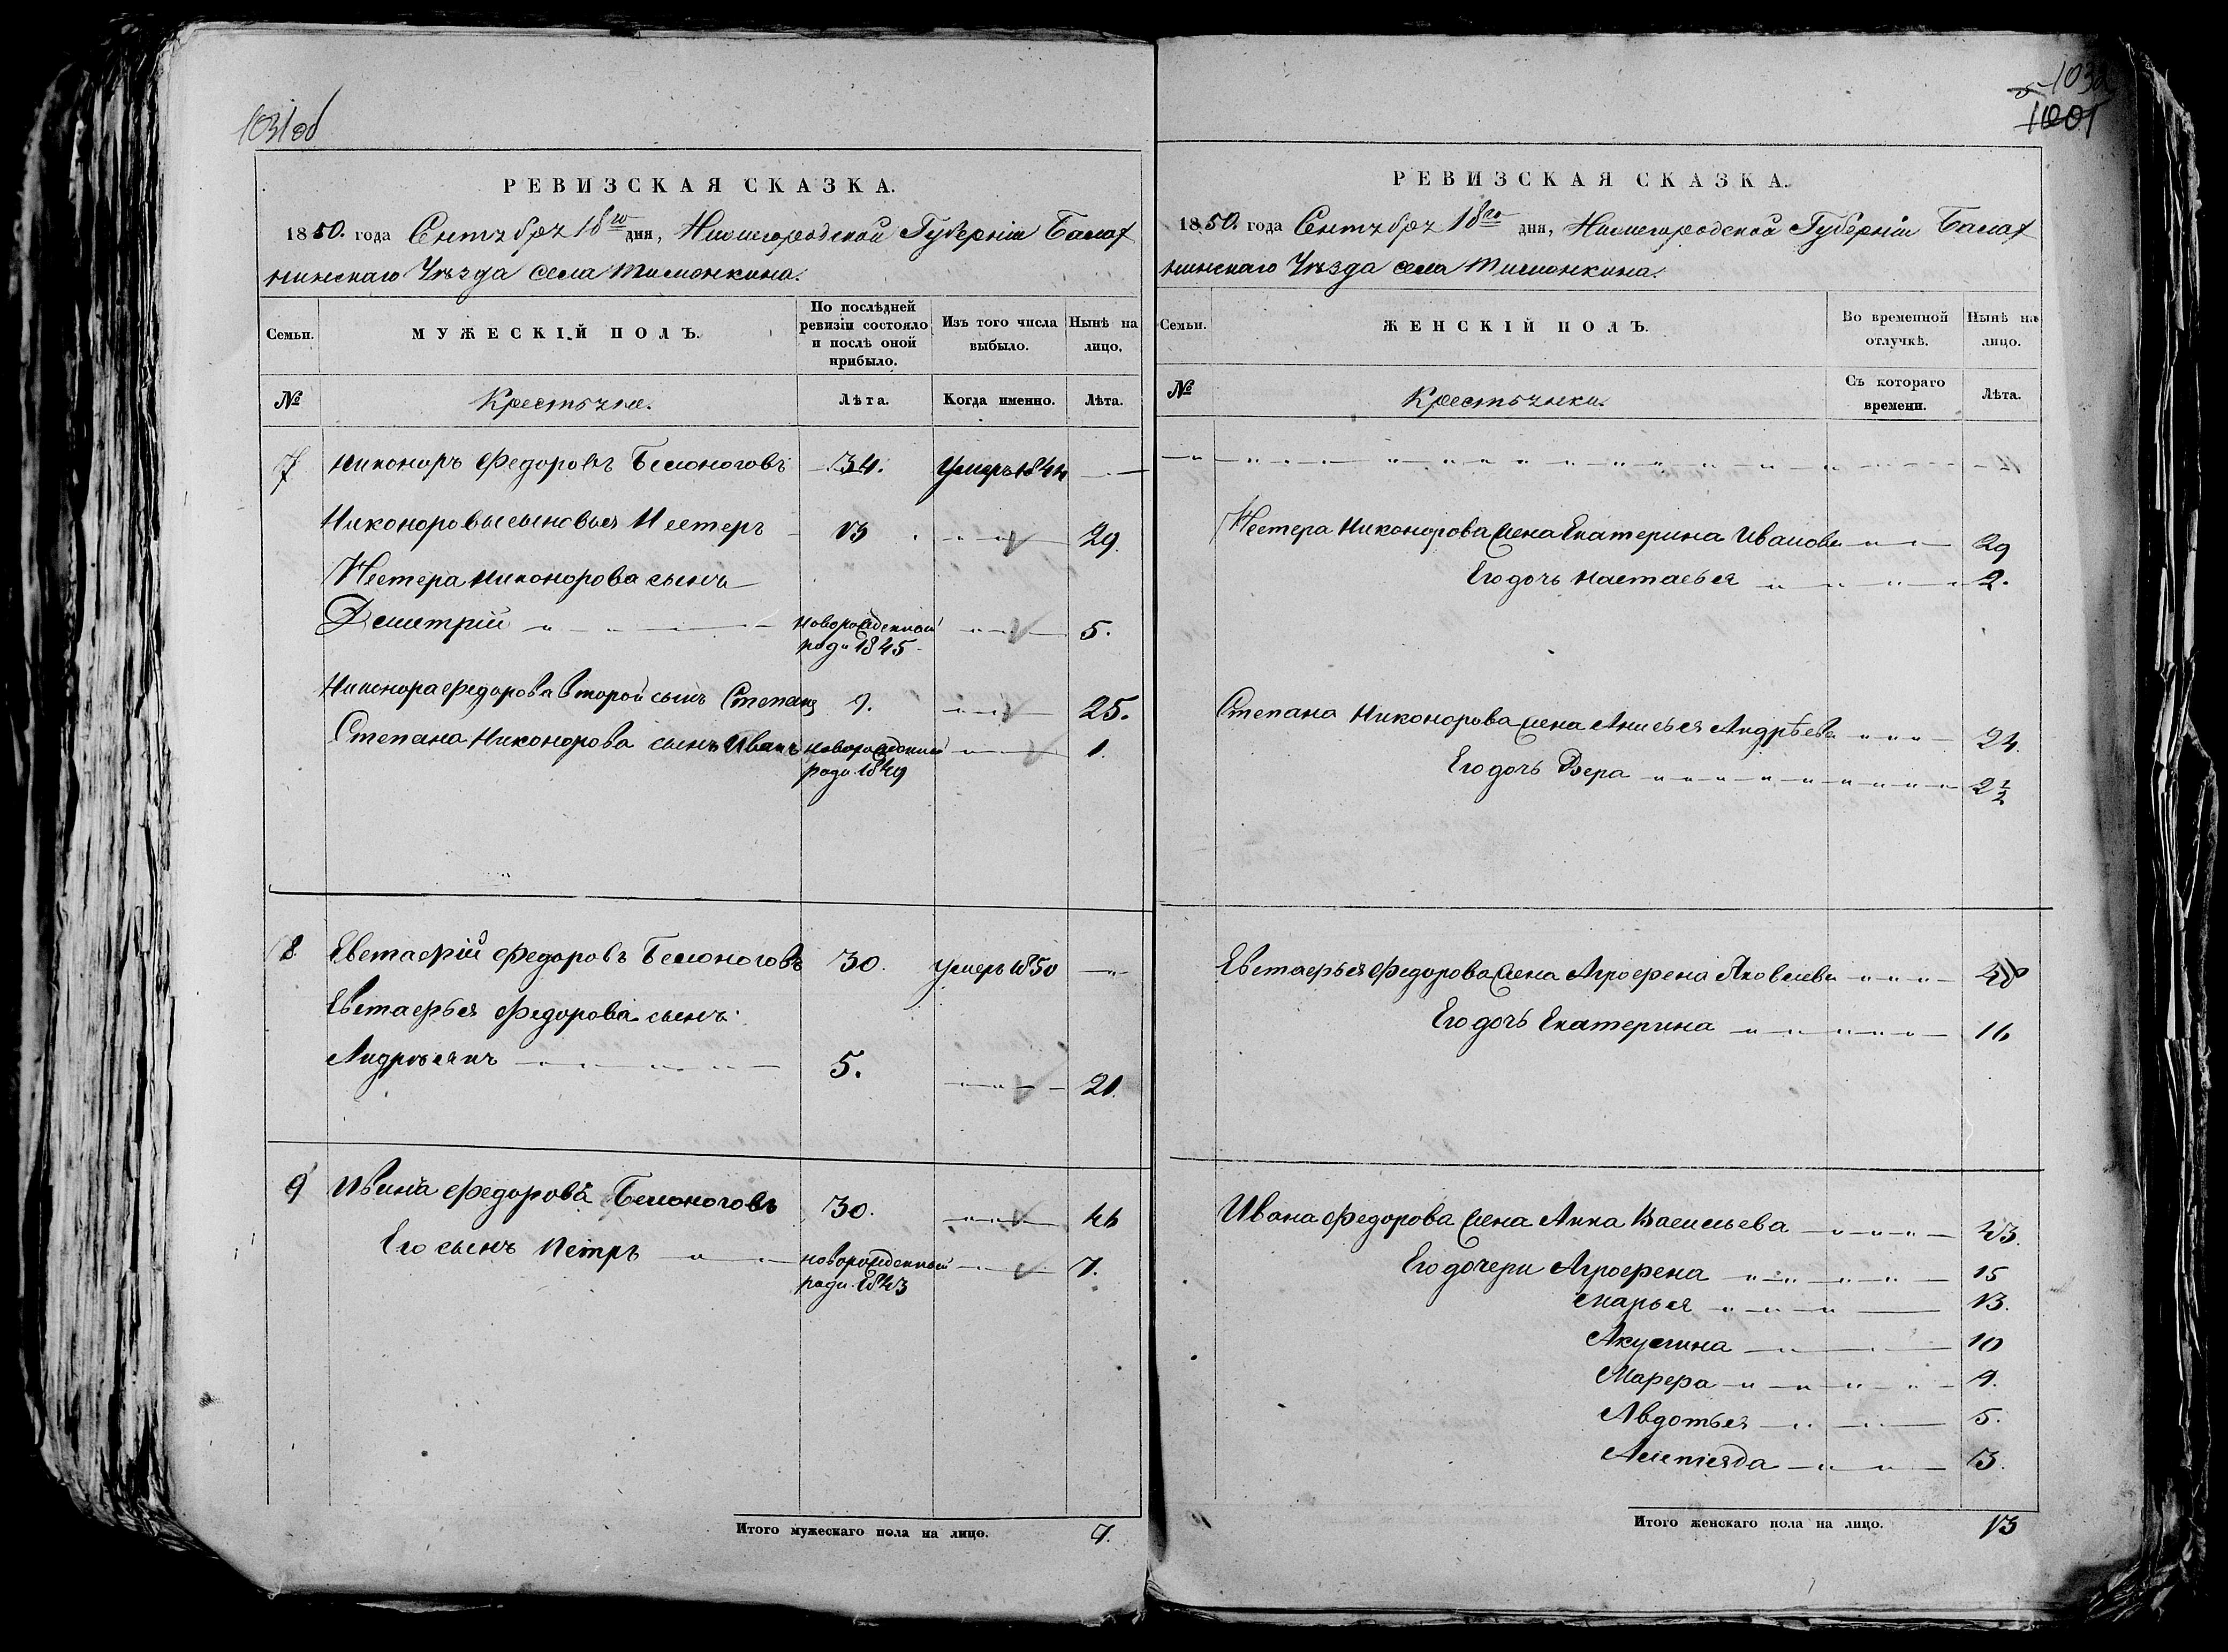 1031об
РЕВИЗСКАЯ СКАЗКА.
1850. года Сентября 18го дня, Нижегородской Губерніи Балах
нинскаго Уѣзда села Тимонкина.
Семьи.
МУЖЕСКІЙ ПОЛЪ.
По послѣдней
ревизіи состояло
и послѣ оной
прибыло.
Изъ того числа
выбыло.
Нынѣ на
лицо.
№
Крестьяне.
Лѣта.
Когда именно.
Лѣта.
7 Никоноръ Федоровъ Белоноговъ 34. Умеръ 1844
Никоноровы сыновья Нестеръ 13 29
Нестера Никонорова сынъ
Дмитрій новорожденной 5.
роди 1845
Никонора Федорова второй сынъ Степанъ 9. 25.
Степана Никонорова сынъ Иванъ новорожденной 1.
роди 1849
8. Евстафій Федоровъ Белоноговъ 30. Умеръ 1850
Евстафья Федорова сынъ
Андреянъ 5. 21.
9 Ивана Федорова Белоноговъ 30. 46
Его сынъ Петръ новорожденный 7.
роди 1843
Итого мужескаго пола на лицо. 7.
1032
1001
РЕВИЗСКАЯ СКАЗКА.
1850. года Сентября 18го дня, Нижегородской Губерніи Балах
нинскаго Уѣзда села Тимонкина.
Семьи.
ЖЕНСКІЙ ПОЛЪ.
Во временной
отлучкѣ.
Нынѣ на
лицо.
№
Крестьянки.
Съ котораго
времени.
Лѣта.
Нестера Никонорова жена Екатерина Иванова 29
Его дочь Настасья 2.
Степана Никонорова жена Анисья Андрѣева 24.
Его дочь Вера 2 1/2
Евстафья Федорова жена Агрофена Яковлева 48
Его дочь Екатерина 16
Ивана Федорова жена Анна Васильева 43.
Его дочери Агрофена 15
Марья 13.
Акулина 10
Марфа 9.
Авдотья 5.
Итого женскаго пола на лицо. 13